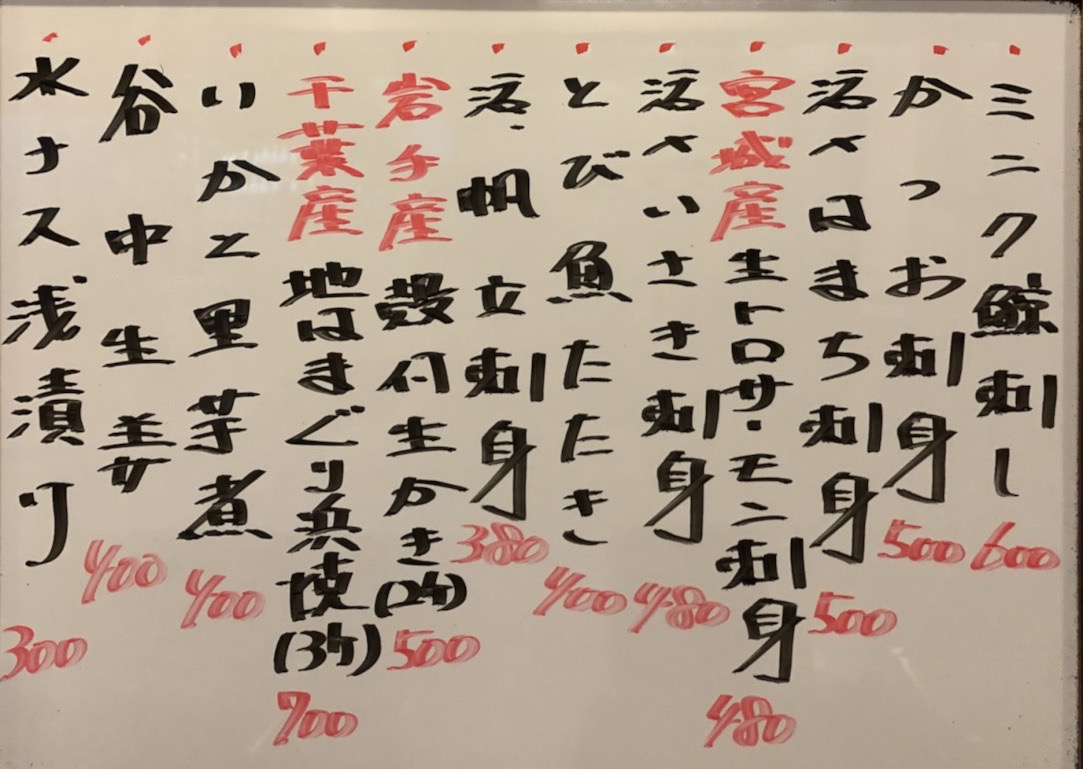 ミニク鯨刺し 600
かつお刺身 500
活〆はまち刺身 500
宮城産生トロサーモン刺身 480
活〆いさき刺身 480
とび魚たたき 400
活帆立刺身 380
岩手産殻付生かき(2ケ) 500
千葉産地はまぐり浜焼(3ケ) 700
いかと里芋煮 400
谷中生姜 400
水ナス浅漬り 300